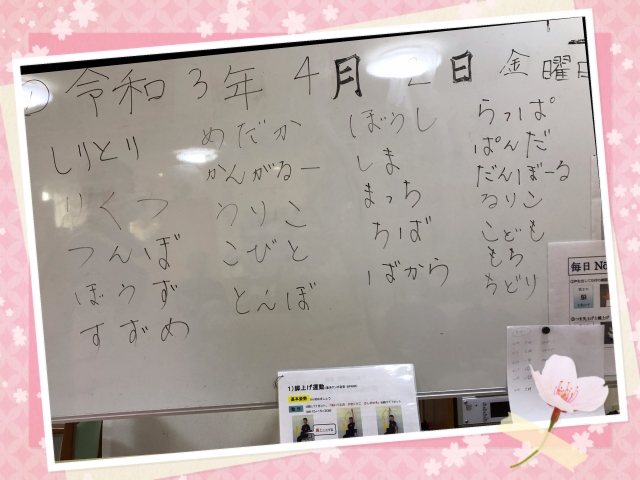 令和3年 4月 2日 金曜日
しりとり
りくつ
つんぼ
ぼうず
すずめ
めだか
かんがるー
うりこ
こびと
とんぼ
ぼうし
しま
まっち
ちば
ばから
らっぱ
ぱんだ
だんぼーる
るりこ
こども
もち
ちどり
毎日 No
1)脚上げ運動
基本姿勢